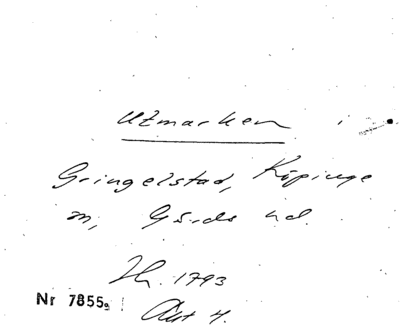 Utmarken i
Gringelstad, Köpinge
m, Gärds hd.
Th. 1793
Akt 4.
Nr 7855a